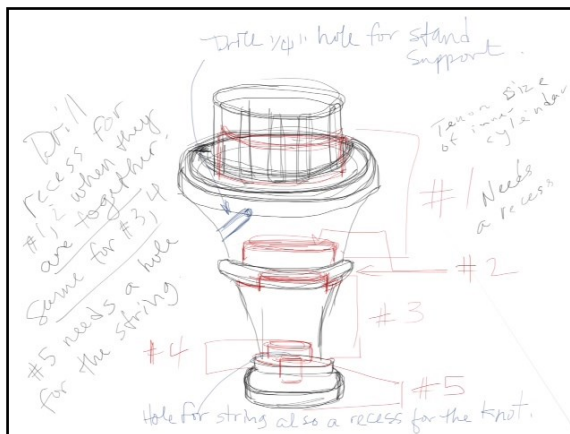 Drill 1/4" hole for stand
support.
Drill
recess for
#1,2 when they
are together.
Same for #3,4
#5 needs a hole
for the string.
Tenon Size
of inner
cylinder
#1 Needs
a recess
#2
#3
#4
#5
Hole for string also a recess for the knot.